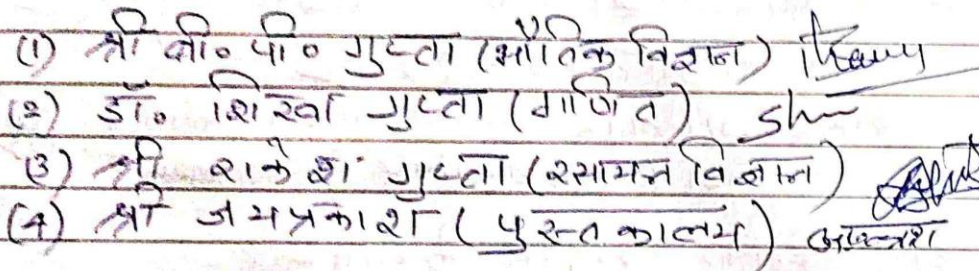 (1) श्री बी० पी० गुप्ता (भौतिक विज्ञान)
(2) डॉ० शिखा गुप्ता (गणित)
(3) श्री राकेश गुप्ता (रसायन विज्ञान)
(4) श्री जयप्रकाश (पुस्तकालय)